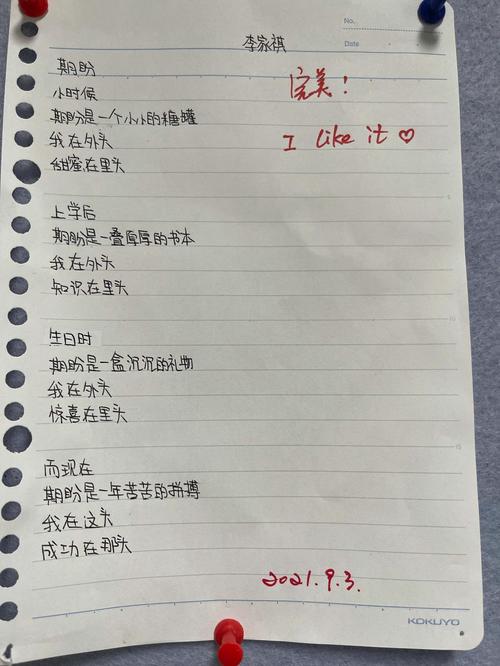 No.
Date
李家祺
完美！
I like it ♡
期盼
小时候
期盼是一个小小的糖罐
我在外头
甜蜜在里头
上学后
期盼是一叠厚厚的书本
我在外头
知识在里头
生日时
期盼是一盒沉沉的礼物
我在外头
惊喜在里头
而现在
期盼是一年苦苦的拼搏
我在这头
成功在那头
2021.9.3.
KOKUYO